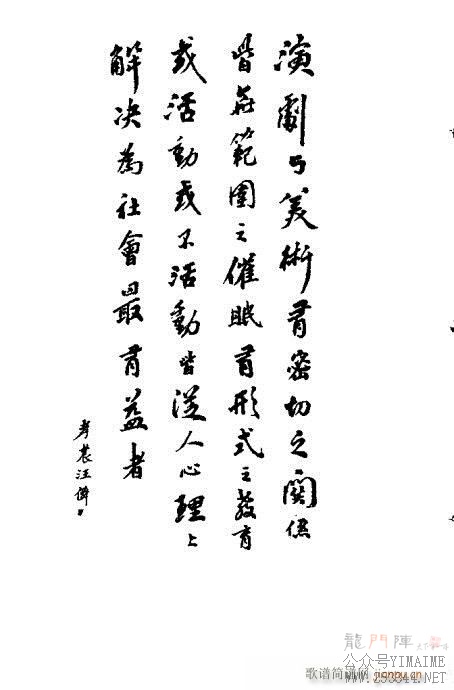 演劇与美術有密切之関係
皆無範圍之催眠有形式之教育
或活動或不活動皆從人心理上
解决為社會最有益者
孝農汪僢
龍門陣
公众号YIMAIME
歌谱简谱网
www.253944.NET